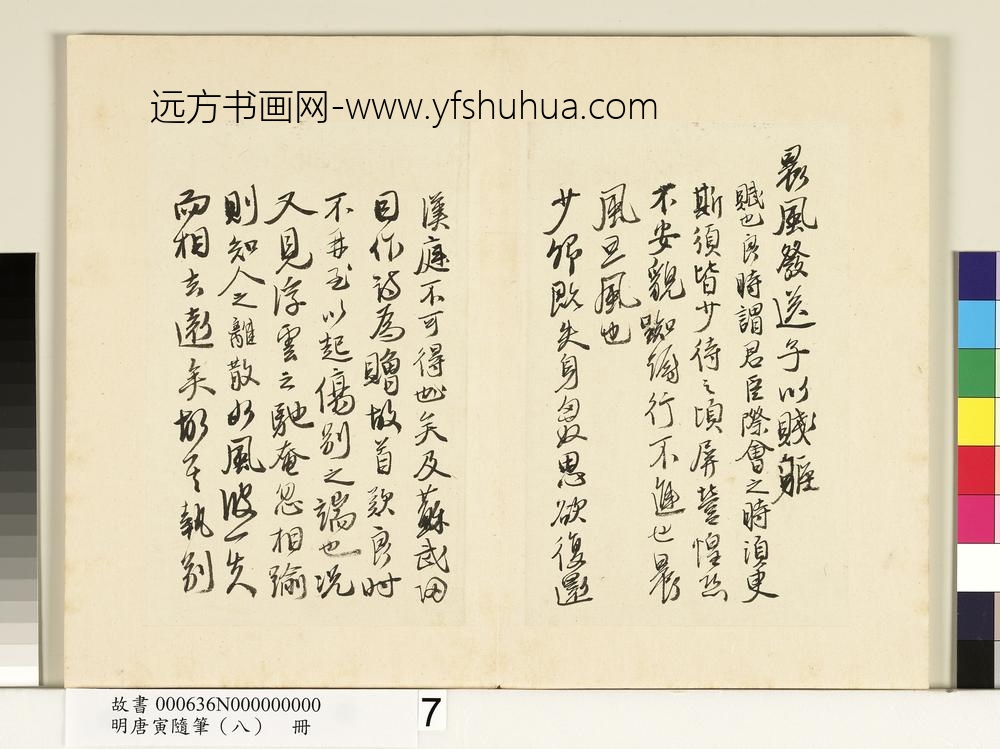 远方书画网-www.yfshuhua.com
晨風發送子以賤軀
賦也良時謂君臣際會之時須臾
斯須皆少待之頃屏營惶恐
不安貌踟躕行不進也晨
風旦風也
少卿既失身匈奴思欲復還
漢庭不可得也矣及蘇武回
因作詩為贈故首歎良時
不再至以起傷別之端也況
又見浮雲之馳奄忽相踰
則知人之離散如風波一失
而相去遠矣故其執別
故書 000636N000000000
明唐寅隨筆(八) 冊
7